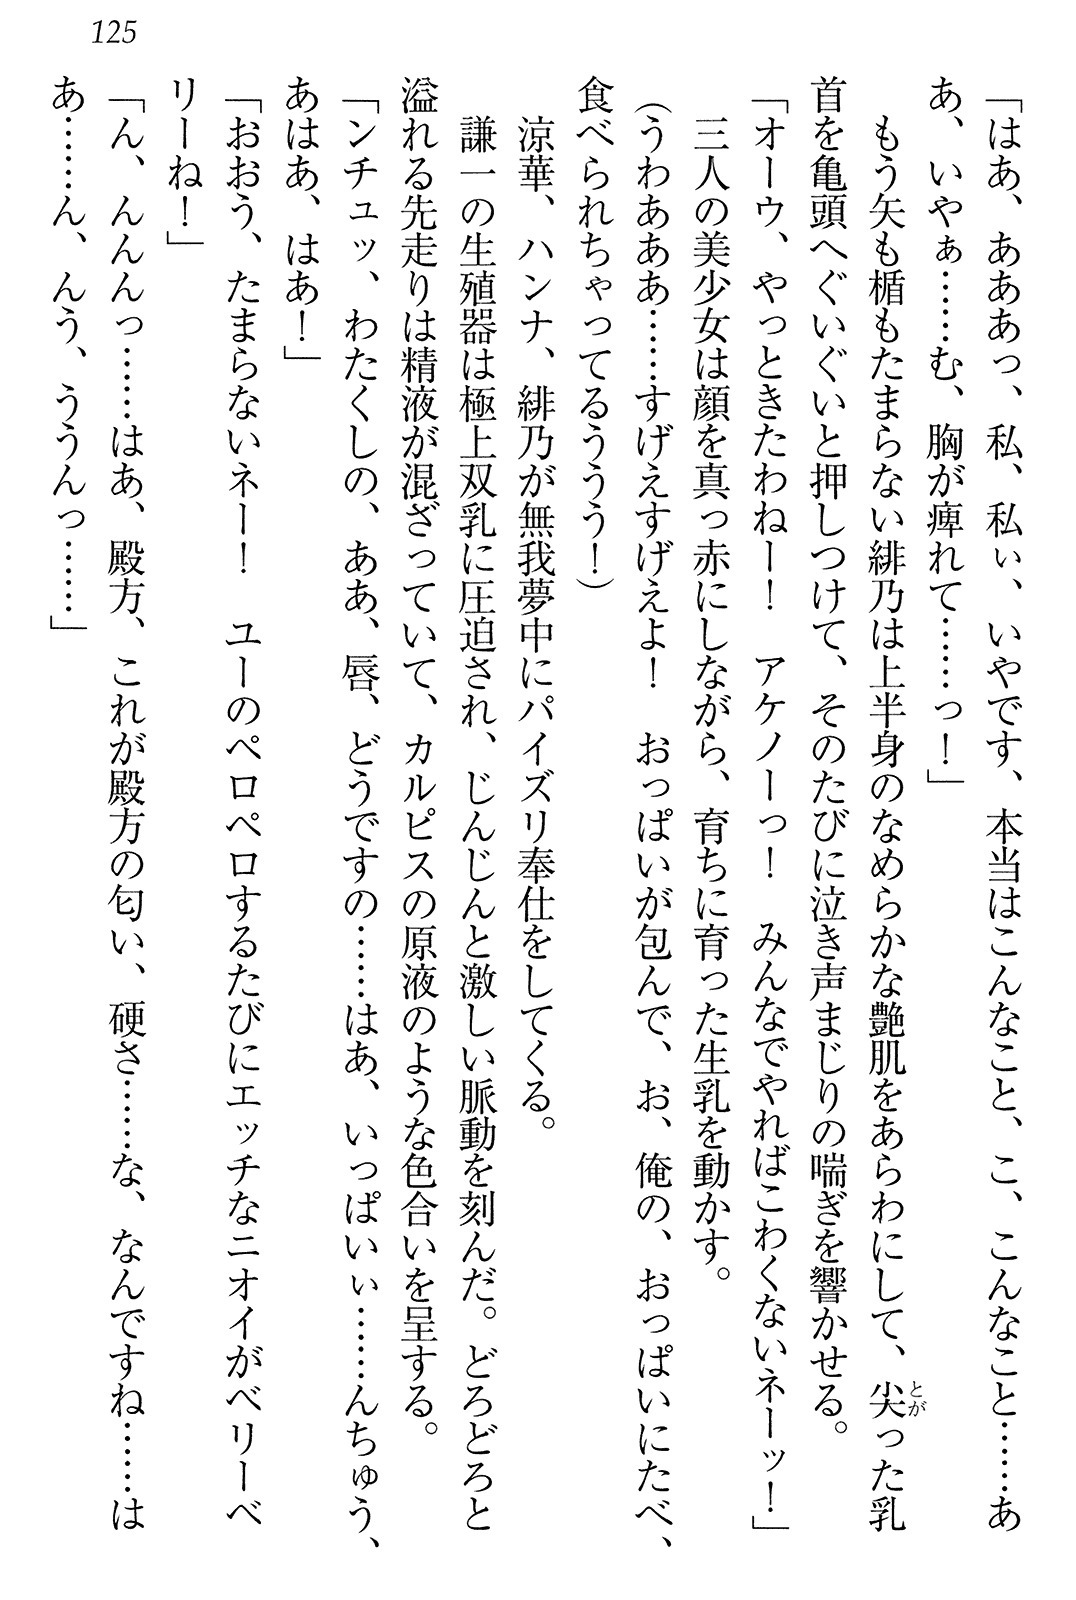 125
「はあ、あああっ、私、私ぃ、いやです、本当はこんなこと、こ、こんなこと……あ
あ、いやぁ……む、胸が痺れて……っ！」
もう矢も楯もたまらない緋乃は上半身のなめらかな艶肌をあらわにして、尖った乳
とが
首を亀頭へぐいぐいと押しつけて、そのたびに泣き声まじりの喘ぎを響かせる。
「オーウ、やっときたわねー！　アケノーっ！　みんなでやればこわくないネーッ！」
三人の美少女は顔を真っ赤にしながら、育ちに育った生乳を動かす。
（うわあああ……すげえすげえよ！　おっぱいが包んで、お、俺の、おっぱいにたべ、
食べられちゃってるううう！）
涼華、ハンナ、緋乃が無我夢中にパイズリ奉仕をしてくる。
謙一の生殖器は極上双乳に圧迫され、じんじんと激しい脈動を刻んだ。どろどろと
溢れる先走りは精液が混ざっていて、カルピスの原液のような色合いを呈する。
「ンチュッ、わたくしの、ああ、唇、どうですの……はあ、いっぱいぃ……んちゅう、
あはあ、はあ！」
「おおう、たまらないネー！　ユーのペロペロするたびにエッチなニオイがベリーベ
リーね！」
「ん、んんんっ……はあ、殿方、これが殿方の匂い、硬さ……な、なんですね……は
あ……ん、んう、ううんっ……」